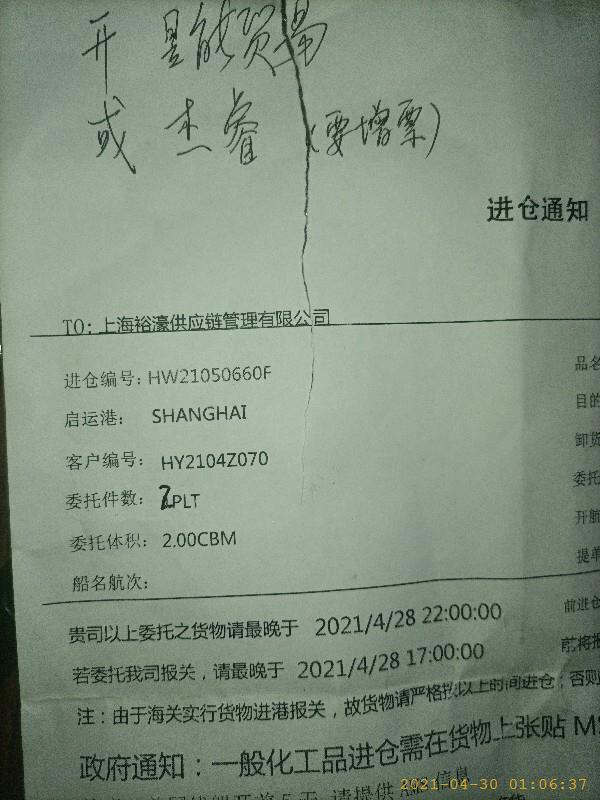 开 昱能贸易
或 杰睿 (要增票)
进仓通知
TO: 上海裕濠供应链管理有限公司
进仓编号: HW21050660F
品名
启运港: SHANGHAI
目的
卸货
客户编号: HY2104Z070
委托件数: 2PLT
委托
委托体积: 2.00CBM
开航
船名航次:
提单
贵司以上委托之货物请最晚于 2021/4/28 22:00:00
前进仓
若委托我司报关，请最晚于 2021/4/28 17:00:00
前将报
注：由于海关实行货物进港报关，故货物请严格按以上时间进仓；否则
政府通知：一般化工品进仓需在货物上张贴 MS
5 天 请提供 信息
2021-04-30 01:06:37